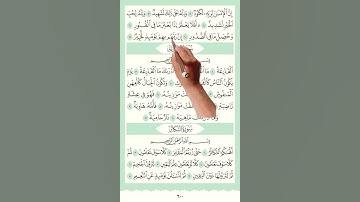 إِنَّ ٱلْإِنسَٰنَ لِرَبِّهِۦ لَكَنُودٌ ۝ وَإِنَّهُۥ عَلَىٰ ذَٰلِكَ لَشَهِيدٌ ۝ وَإِنَّهُۥ لِحُبِّ
ٱلْخَيْرِ لَشَدِيدٌ ۝ أَفَلَا يَعْلَمُ إِذَا بُعْثِرَ مَا فِى ٱلْقُبُورِ ۝
وَحُصِّلَ مَا فِى ٱلصُّدُورِ ۝ إِنَّ رَبَّهُم بِهِمْ يَوْمَئِذٍ لَّخَبِيرٌ ۝
ٱلْقَارِعَةُ ۝ مَا ٱلْقَارِعَةُ ۝ أَدْرَىٰكَ مَا ٱلْقَارِعَةُ ۝ يَوْمَ
يَكُونُ ٱلنَّاسُ كَٱلْفَرَاشِ وَتَكُونُ ٱلْجِبَالُ كَٱلْعِهْنِ
ٱلْمَنفُوشِ ۝ فَأَمَّا مَن مَوَٰزِينُهُۥ ۝ فَهُوَ فِى عِيشَةٍ
رَّاضِيَةٍ ۝ وَأَمَّا مَنْ مَوَٰزِينُهُۥ ۝ فَأُمُّهُۥ هَاوِيَةٌ ۝
وَمَآ أَدْرَىٰكَ مَا هِيَهْ ۝ نَارٌ حَامِيَةٌ ۝
سُورَةُ ٱلتَّكَاثُرِ
بِسْمِ ٱللَّهِ ٱلرَّحْمَٰنِ ٱلرَّحِيمِ
أَلْهَىٰكُمُ ٱلتَّكَاثُرُ ۝ حَتَّىٰ زُرْتُمُ ٱلْمَقَابِرَ ۝ كَلَّا سَوْفَ تَعْلَمُونَ ۝
ثُمَّ كَلَّا سَوْفَ تَعْلَمُونَ ۝ كَلَّا لَوْ تَعْلَمُونَ عِلْمَ ٱلْيَقِينِ ۝ لَتَرَوُنَّ ٱلْجَحِيمَ ۝
ثُمَّ لَتَرَوُنَّهَا عَيْنَ ٱلْيَقِينِ ۝ ثُمَّ لَتُسْـَٔلُنَّ يَوْمَئِذٍ عَنِ ٱلنَّعِيمِ ۝
٦٠٠